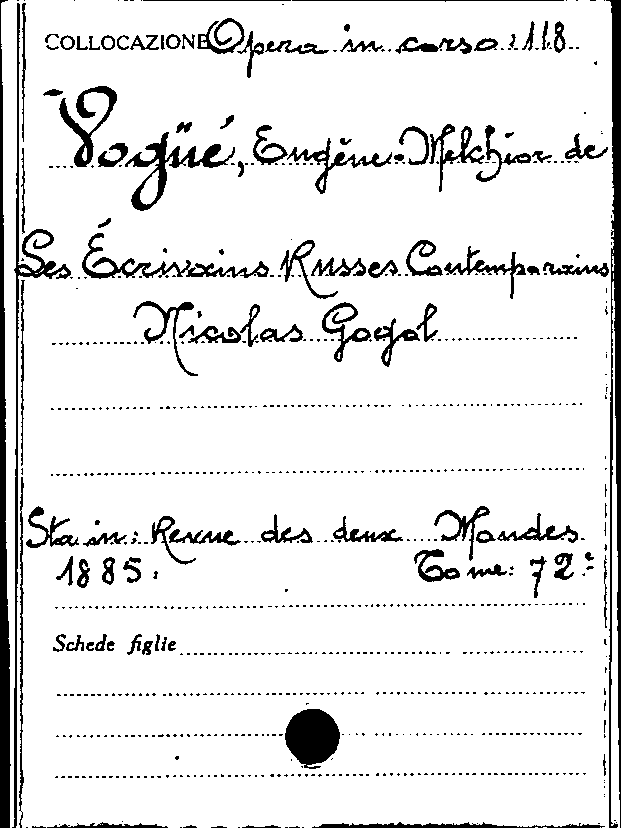 COLLOCAZIONE Opera in corso: 118
Vogüé, Eugène-Melchior de
Les Écrivains Russes Contemporains
Nicolas Gogol
Sta in: Revue des deux Mondes
1885. Tome: 72º
Schede figlie